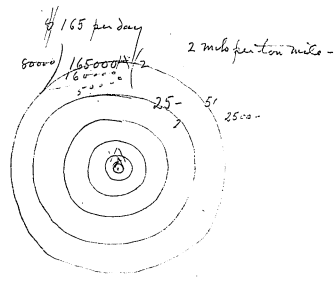 $ 165 per day
2 mils per ton mile -
80000 165000 2
160000
25- 5'
2500-